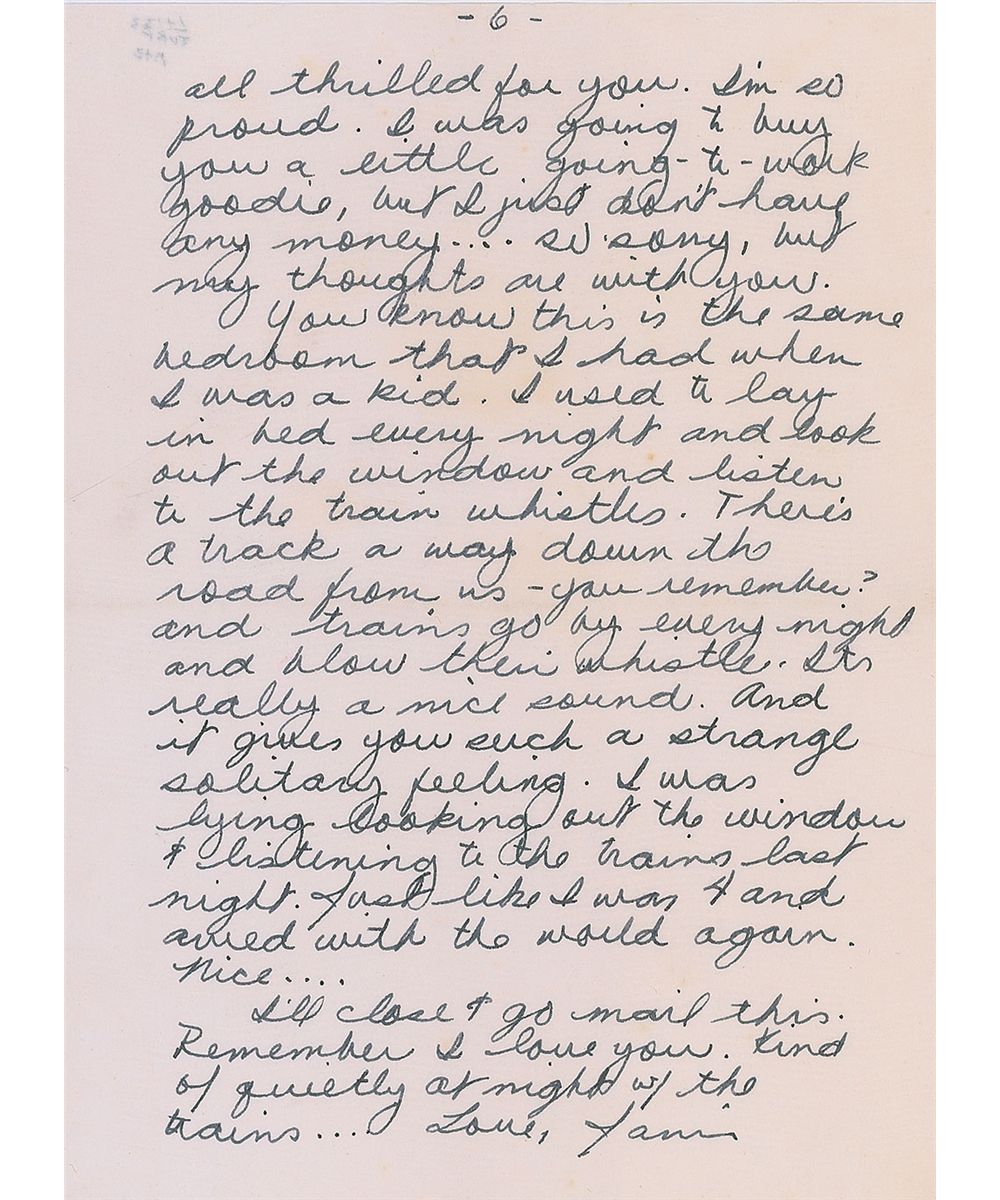 - 6 -
all thrilled for you. I'm so
proud. I was going to buy
you a little going-to-work
goodie, but I just don't have
any money.... so sorry, but
my thoughts are with you.
You know this is the same
bedroom that I had when
I was a kid. I used to lay
in bed every night and look
out the window and listen
to the train whistles. There's
a track a way down the
road from us - you remember?
and trains go by every night
and blow their whistle. Its
really a nice sound. And
it gives you such a strange
solitary feeling. I was
lying looking out the window
& listening to the trains last
night. Just like I was 4 and
awed with the world again.
Nice....
I'll close & go mail this.
Remember I love you. Kind
of quietly at night w/ the
trains.... Love, Janis